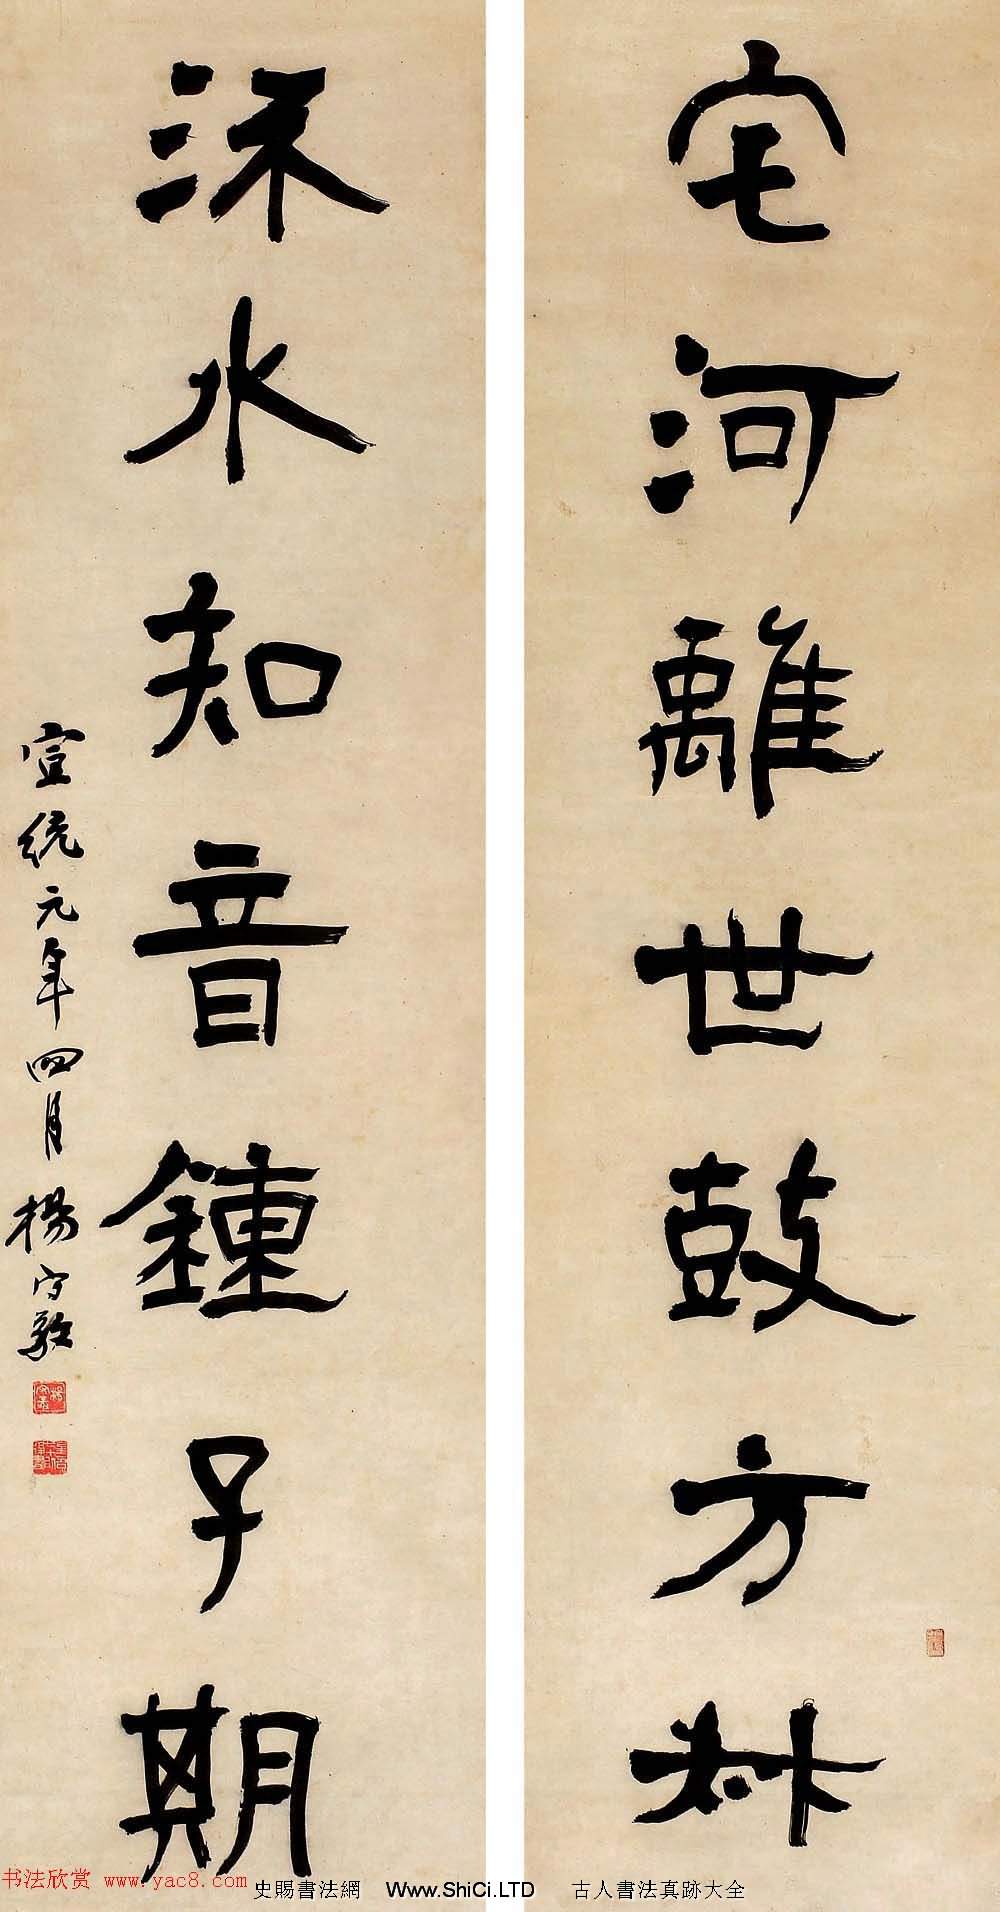 宅河離世鼓方叔
沫水知音鍾子期
宣統元年四月楊守敬
书法欣赏 www.yac8.com
史賜書法網 Www.ShiCi.LTD 古人書法真跡大全